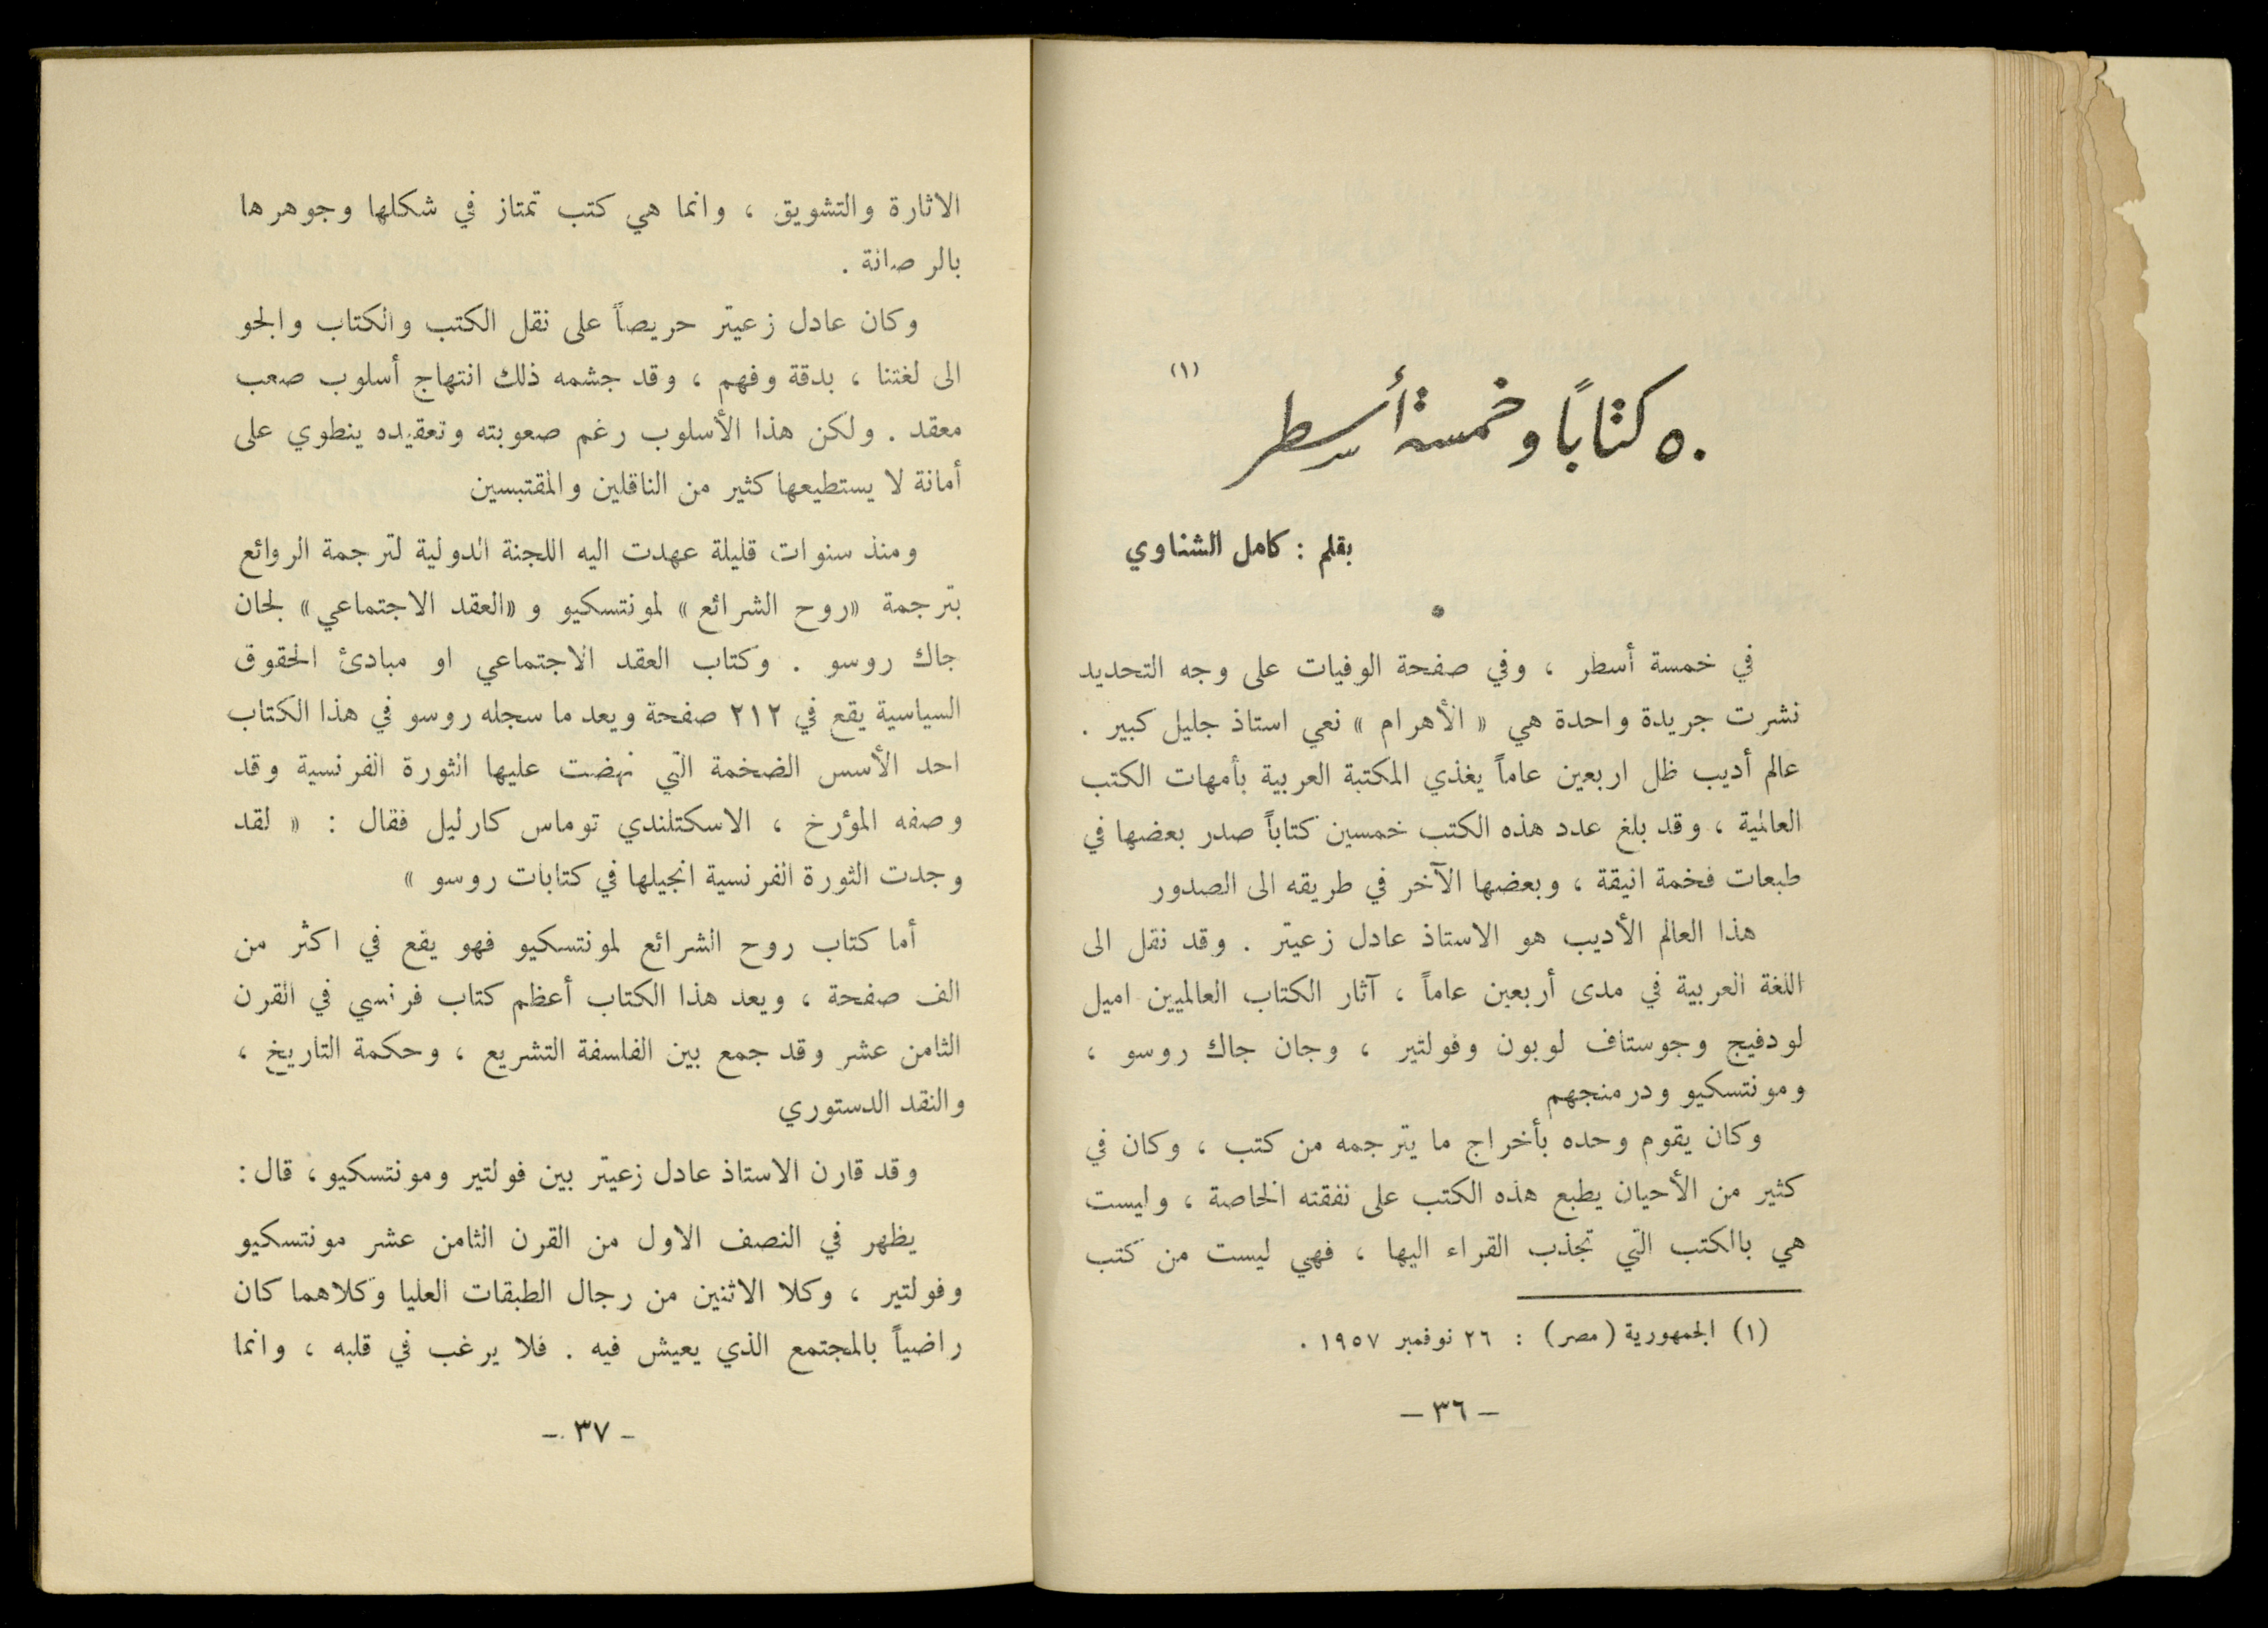 (١)
٥٠ كتاباً وخمسة أسطر
بقلم : كامل الشناوي
في خمسة أسطر ، وفي صفحة الوفيات على وجه التحديد
نشرت جريدة واحدة هي « الأهرام » نعي استاذ جليل كبير .
عالم أديب ظل اربعين عاماً يغذي المكتبة العربية بأمهات الكتب
العالمية ، وقد بلغ عدد هذه الكتب خمسين كتاباً صدر بعضها في
طبعات فخمة انيقة ، وبعضها الآخر في طريقه الى الصدور
هذا العالم الأديب هو الاستاذ عادل زعيتر . وقد نقل الى
اللغة العربية في مدى أربعين عاماً ، آثار الكتاب العالميين اميل
لودفيج وجوستاف لوبون وفولتير ، وجان جاك روسو ،
ومونتسكيو ودرمنجهم
وكان يقوم وحده بأخراج ما يترجمه من كتب ، وكان في
كثير من الأحيان يطبع هذه الكتب على نفقته الخاصة ، وليست
هي بالكتب التي تجذب القراء اليها ، فهي ليست من كتب
(١) الجمهورية (مصر) : ٢٦ نوفمبر ١٩٥٧ .
– ٣٦ –
الاثارة والتشويق ، وانما هي كتب تمتاز في شكلها وجوهرها
بالرصانة .
وكان عادل زعيتر حريصاً على نقل الكتب والكتاب والجو
الى لغتنا ، بدقة وفهم ، وقد جشمه ذلك انتهاج أسلوب صعب
معقد . ولكن هذا الأسلوب رغم صعوبته وتعقيده ينطوي على
أمانة لا يستطيعها كثير من الناقلين والمقتبسين
ومنذ سنوات قليلة عهدت اليه اللجنة الدولية لترجمة الروائع
بترجمة «روح الشرائع» لمونتسكيو و«العقد الاجتماعي» لجان
جاك روسو . وكتاب العقد الاجتماعي او مبادئ الحقوق
السياسية يقع في ٢١٢ صفحة ويعد ما سجله روسو في هذا الكتاب
احد الأسس الضخمة التي نهضت عليها الثورة الفرنسية وقد
وصفه المؤرخ ، الاسكتلندي توماس كارليل فقال : « لقد
وجدت الثورة الفرنسية انجيلها في كتابات روسو »
أما كتاب روح الشرائع لمونتسكيو فهو يقع في اكثر من
الف صفحة ، ويعد هذا الكتاب أعظم كتاب فرنسي في القرن
الثامن عشر وقد جمع بين الفلسفة التشريع ، وحكمة التاريخ ،
والنقد الدستوري
وقد قارن الاستاذ عادل زعيتر بين فولتير ومونتسكيو، قال :
يظهر في النصف الاول من القرن الثامن عشر مونتسكيو
وفولتير ، وكلا الاثنين من رجال الطبقات العليا وكلاهما كان
راضياً بالمجتمع الذي يعيش فيه . فلا يرغب في قلبه ، وانما
– ٣٧ –